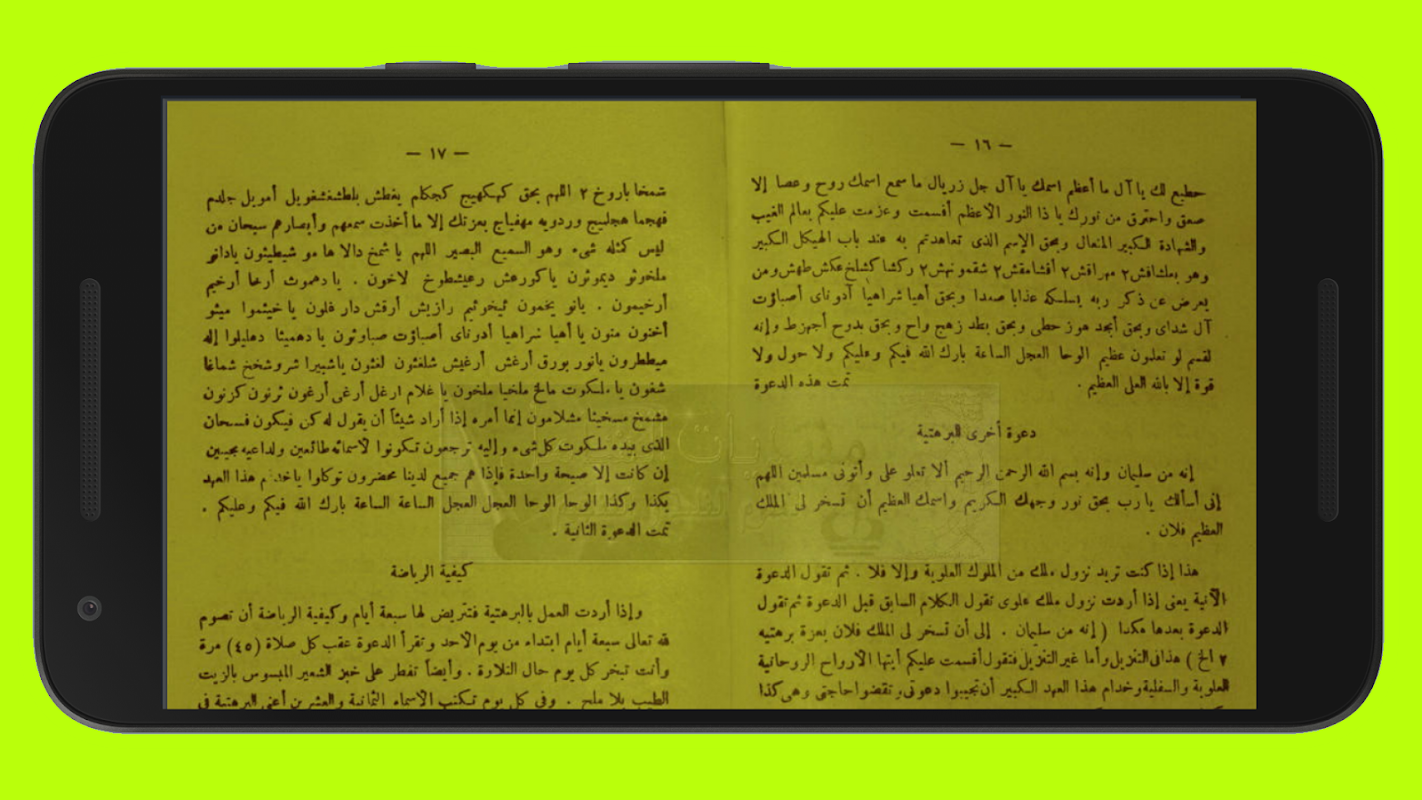 — ١٦ —
حطيع لك يا آل ما أعظم اسمك يا آل جل زريال ما سمع اسمك روح وعصا إلا
صعق واحترق من نورك يا ذا النور الأعظم أقسمت وعزمت عليكم بعالم الغيب
والشهادة الكبير المتعال وبحق الإسم الذى تعاهدتم به عند باب الهيكل الكبير
وهو بعلشاقش٢ مهراقش٢ أقشامقش٢ شقمونهش٢ ركشا كشلخ عكش طهش ومن
يعرض عن ذكر ربه يسلكه عذابا صعدا وبحق أهيا شراهيا أدوناى أصباؤت
آل شداى وبحق أبجد هوز حطى وبحق بطد زهج واح وبحق بدوح أجهزط وإنه
لقسم لو تعلمون عظيم الوحا العجل الساعة بارك الله فيكم وعليكم ولا حول ولا
قوة إلا بالله العلى العظيم . تمت هذه الدعوة
دعوة أخرى للبرهتية
إنه من سليمان وإنه بسم الله الرحمن الرحيم ألا تعلو على وأتونى مسلمين اللهم
إنى أسألك يا رب بحق نور وجهك الكريم واسمك العظيم أن تسخر لى الملك
العظيم فلان .
هذا إذا كنت تريد نزول ملك من الملوك العلوية وإلا فلا . ثم تقول الدعوة
الآتية يعنى إذا أردت نزول ملك علوى تقول الكلام السابق قبل الدعوة ثم تقول
الدعوة بعدها هكذا ( إنه من سليمان . إلى أن تسخر لى الملك فلان بعزة برهتيه
٢ الخ ) هذا فى التنزيل وأما غير التنزيل فتقول أقسمت عليكم أيتها الأرواح الروحانية
العلوية والسفلية وخدام هذا العهد الكبير أن تجيبوا دعوتى وتقضوا حاجتى وهى كذا
— ١٧ —
شمخا باروخ ٢ اللهم بحق كهكهيج كجكلم يغطش بلطشغشغويل أمويل جلدم
فهجما هجلميج وردويه مهفياج بعزتك إلا ما أخذت سمعهم وأبصارهم سبحان من
ليس كمثله شىء وهو السميع البصير اللهم يا شمخ دالا ها مو شيطيثون ياداثر
ملخوثو ديموثون ياكورعش رعيشطوخ لاخون . يا دهموث أرخا أرخيم
أرخيمون . يانو يخمون ثيخوثيم رازيش أرقش دار فلون يا خيثموا ميثو
أخنون منون يا أهيا شراهيا أدوناى أصباؤت صباوثون يا دهميثا دهليلوا إله
ميططرون يانور بورق أرغش أرغيش شلغثون لغثون ياشبيرا شروشخخ شماغا
شغون يا ملكوت مالخ ملخيا ملخون يا غلام ارغل أرغى أرغون ثرنون كزنون
مشمخ مسخيثا مشلامون إنما أمره إذا أراد شيئاً أن يقول له كن فيكون فسبحان
الذى بيده ملكوت كل شىء وإليه ترجعون تكونوا لأسمائه طائعين ولداعيه مجيبين
إن كانت إلا صيحة واحدة فإذا هم جميع لدينا محضرون توكلوا ياخدام هذا العهد
بكذا وكذا الوحا الوحا العجل العجل الساعة الساعة بارك الله فيكم وعليكم .
تمت الدعوة الثانية .
كيفية الرياضة
وإذا أردت العمل بالبرهتية فتتريض لها سبعة أيام وكيفية الرياضة أن تصوم
لله تعالى سبعة أيام ابتداء من يوم الأحد وتقرأ الدعوة عقب كل صلاة (٤٥) مرة
وأنت تبخر كل يوم حال التلاوة . وأيضاً تفطر على خبز الشعير المبسوس بالزيت
الطيب بلا ملح . وفى كل يوم تكتب الأسماء الثمانية والعشرين أعنى البرهتية فى